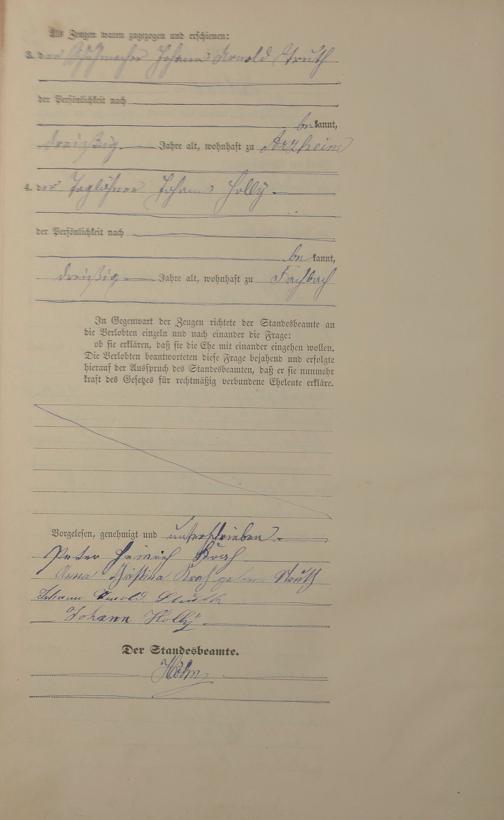 Als Zeugen waren zugezogen und erschienen:
3. der Schuhmacher Johann Arnold Struth
der Persönlichkeit nach
be kannt,
dreißig Jahre alt, wohnhaft zu Arzheim
4. der Taglöhner Johann Holly
der Persönlichkeit nach
be kannt,
dreißig Jahre alt, wohnhaft zu Fachbach
In Gegenwart der Zeugen richtete der Standesbeamte an
die Verlobten einzeln und nach einander die Frage:
ob sie erklären, daß sie die Ehe mit einander eingehen wollen.
Die Verlobten beantworteten diese Frage bejahend und erfolgte
hierauf der Ausspruch des Standesbeamten, daß er sie nunmehr
kraft des Gesetzes für rechtmäßig verbundene Eheleute erkläre.
Vorgelesen, genehmigt und unterschrieben
Peter Heinrich
Anna Christina geborene Struth
Johann Arnold Struth
Johann Holly
Der Standesbeamte.